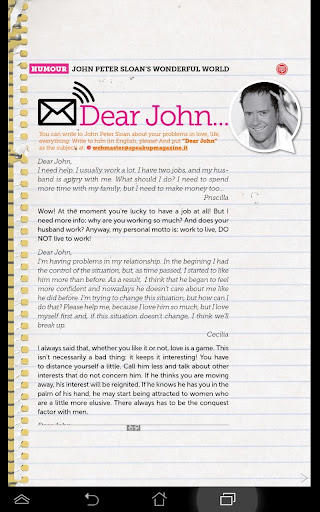 HUMOUR JOHN PETER SLOAN'S WONDERFUL WORLD
Dear John...
You can write to John Peter Sloan about your problems in love, life,
everything. Write to him (in English, please! And put "Dear John"
as the subject) at: webmaster@speakupmagazine.it
Dear John,
I need help. I usually work a lot. I have two jobs, and my hus-
band is angry with me. What should I do? I need to spend
more time with my family, but I need to make money too...
Priscilla
Wow! At the moment you're lucky to have a job at all! But I
need more info: why are you working so much? And does your
husband work? Anyway, my personal motto is: work to live, DO
NOT live to work!
Dear John,
I'm having problems in my relationship. In the begining I had
the control of the situation, but, as time passed, I started to like
him more than before. As a result, I think that he began to feel
more confident and nowadays he doesn't care about me like
he did before. I'm trying to change this situation, but how can I
do that? Please help me, because I love him so much, but I love
myself first and, if this situation doesn't change, I think we'll
break up.
Cecilia
I always said that, whether you like it or not, love is a game. This
isn't necessarily a bad thing: it keeps it interesting! You have
to distance yourself a little. Call him less and talk about other
interests that do not concern him. If he thinks you are moving
away, his interest will be reignited. If he knows he has you in the
palm of his hand, he may start being attracted to women who
are a little more elusive. There always has to be the conquest
factor with men.
Dear John